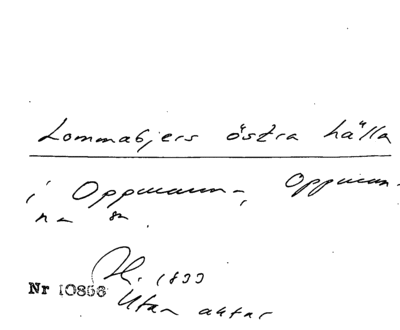 Lommabjers östra hälla
i Oppmanna, Oppman-
na sn.
Nr 10868
Utan aktnr